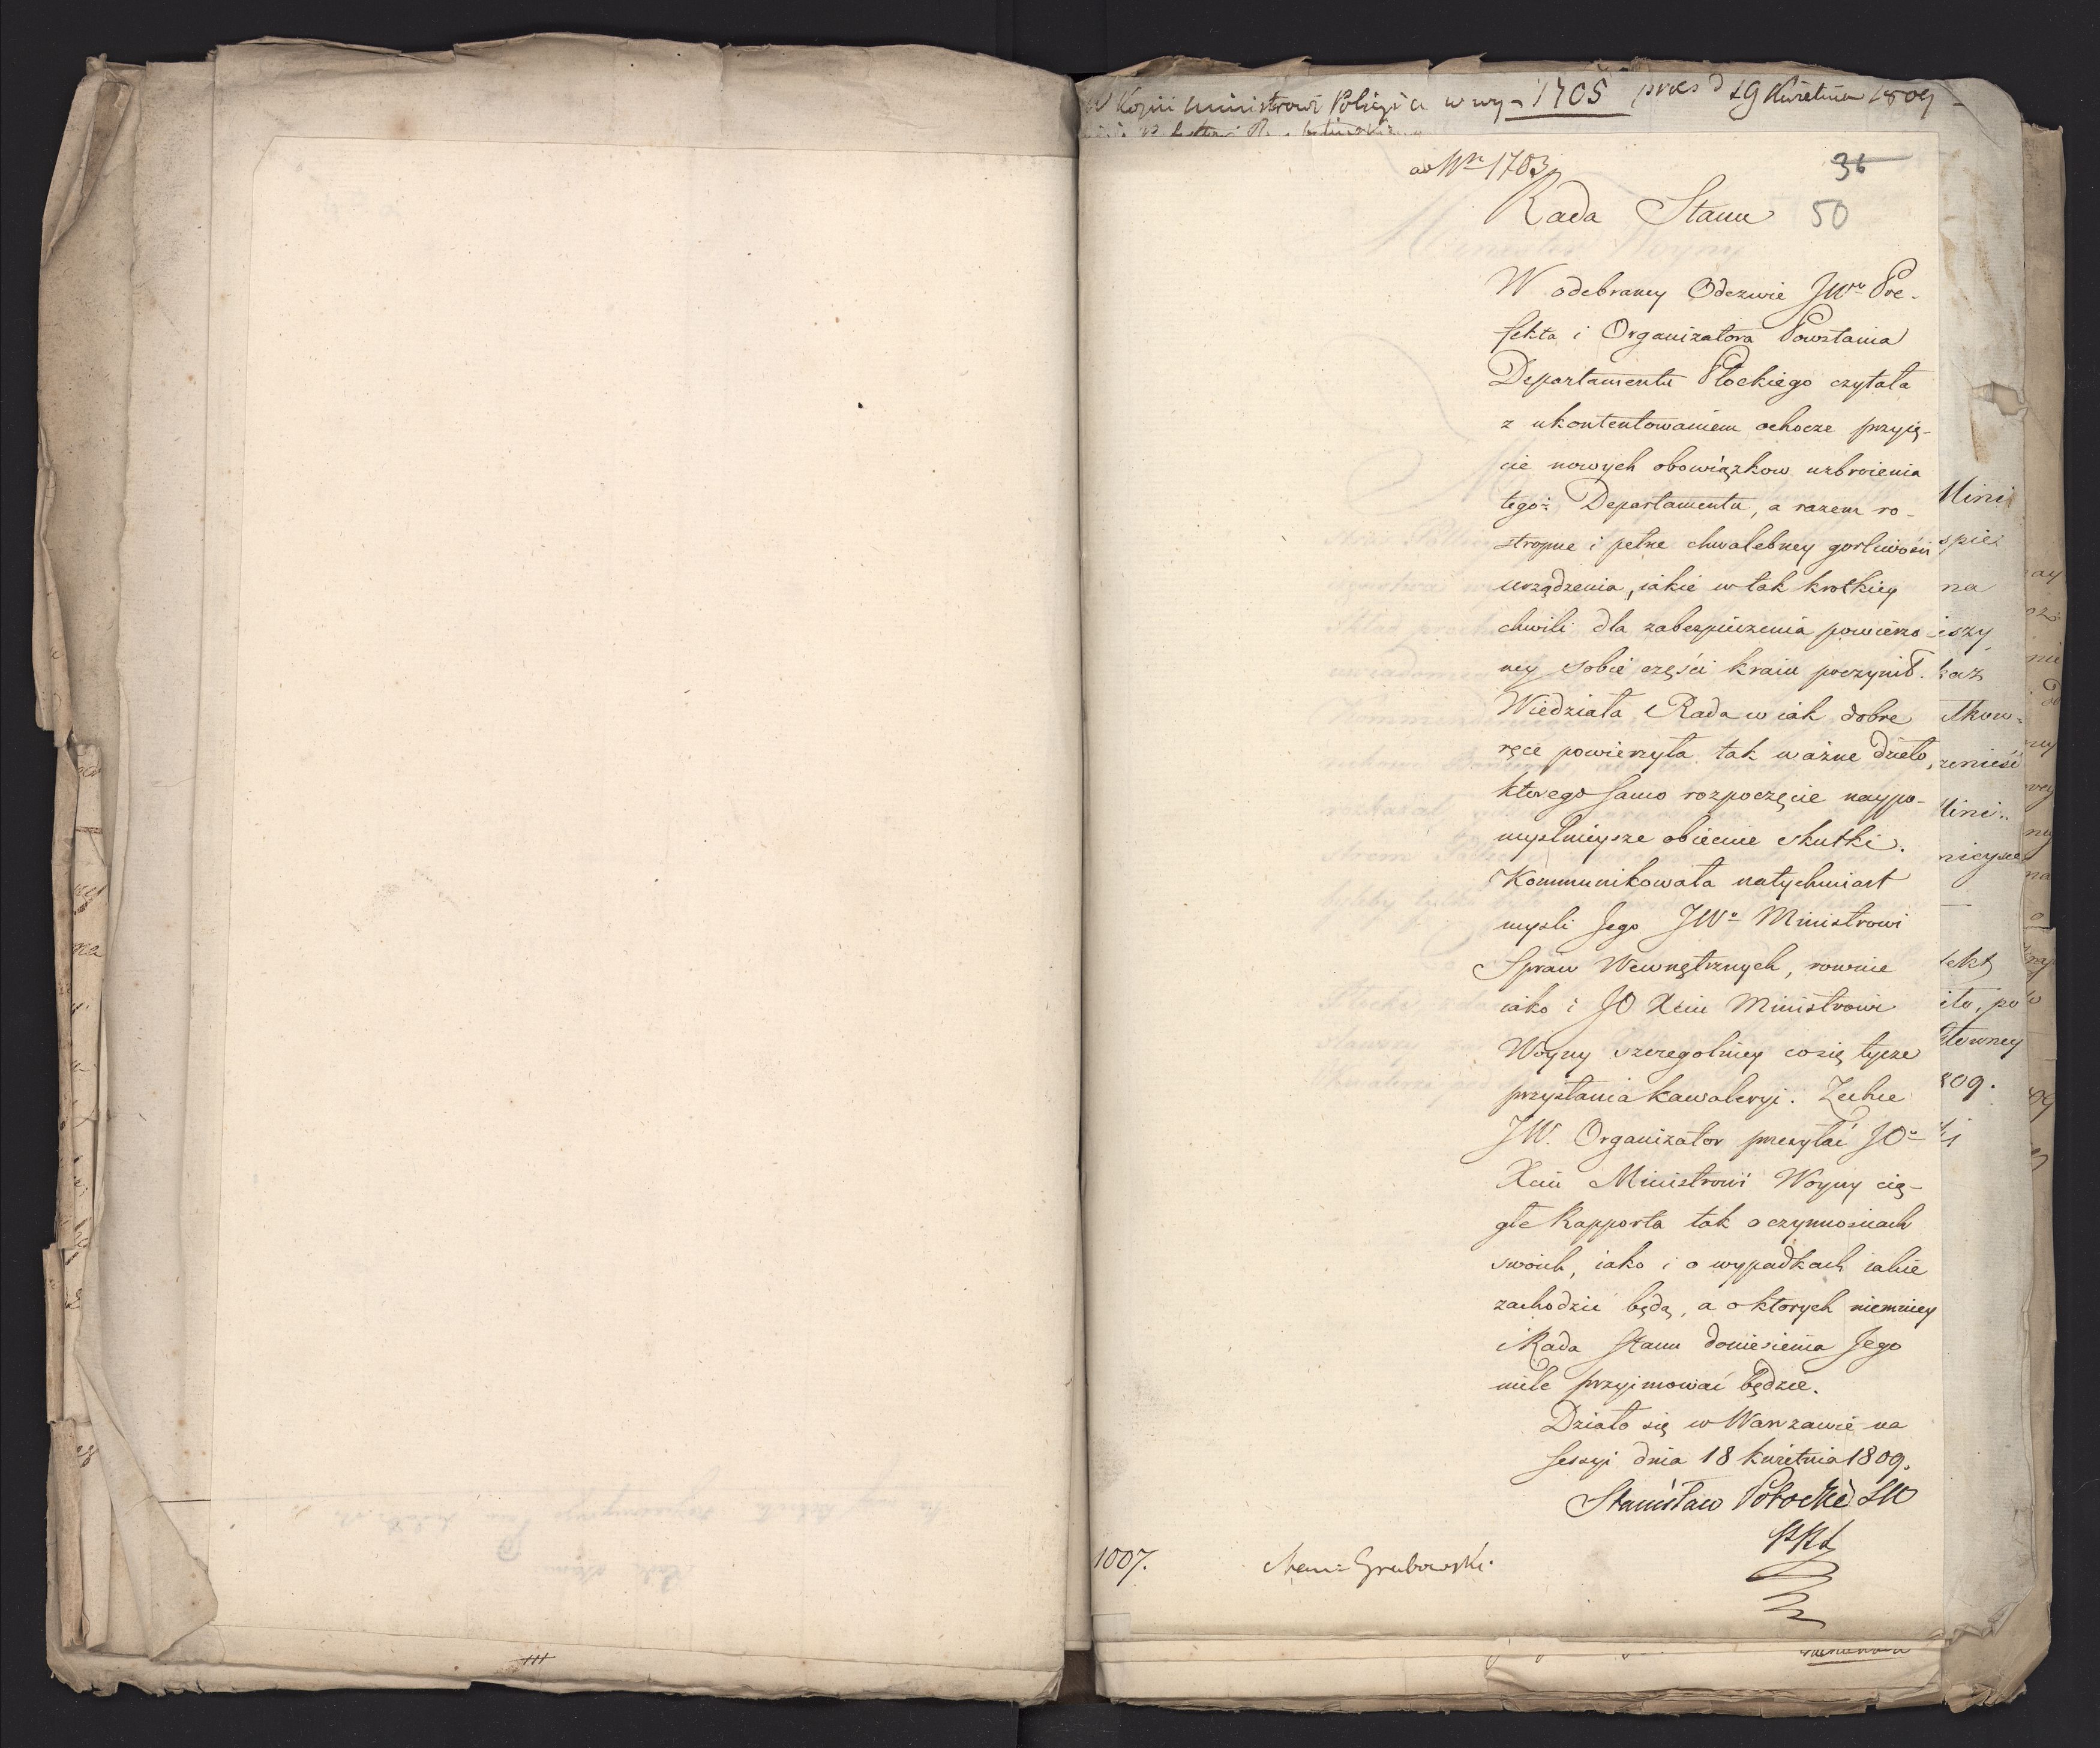 W Kopii Ministrowi Policyi a w wy- 1705 praes d 19 Kwietnia 1809
ad Nr 1703
36
Rada Stanu 50
W odebraney Odezwie JWo Pre-
fekta i Organizatora Powstania
Departamentu Płockiego czytała
z ukontentowaniem ochocze przyię-
cie nowych obowiązkow uzbroienia
tegoż Departamentu, a razem ro-
stropne i pełne chwalebney gorliwości
urządzenia, iakie w tak krotkiey
chwili dla zabezpieczenia powierzo
ney sobie części kraiu poczynił.
Wiedziała Rada w iak dobre
ręce powierzyła tak ważne dzieło,
ktorego samo rozpoczęcie naypo-
myślnieysze obiecuie skutki.
Kommunikowała natychmiast
mysli Jego JWo Ministrowi
Spraw Wewnętrznych, rownie
iako i JO Xciu Ministrowi
Woyny szczegolniey co się tycze
przysłania kawaleryi. Zechce
JW. Organizator przesyłać JOo
Xciu Ministrowi Woyny cią-
głe Rapporta tak o czynnosciach
swoich, iako i o wypadkach iakie
zachodzić będą, a o ktorych niemniey
Rada Stanu doniesienia Jego
mile przyimować będzie.
Działo się w Warszawie na
Sessyi dnia 18 kwietnia 1809.
Stanisław Potocki
1007. Grabowski
Mini
spie
na
iszy
kaz
tkow-
zenieśi
Mini-
nieysze
fekt
ito, po
łowney
809.
III